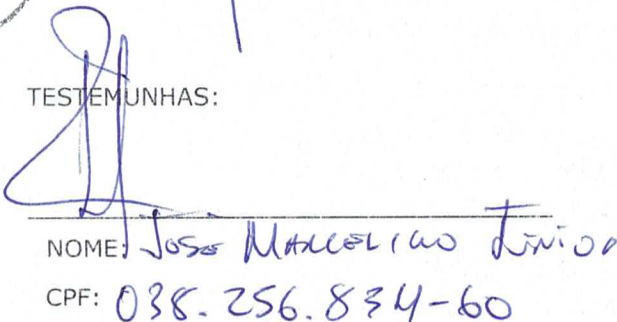 TESTEMUNHAS:
NOME: JOSE MARCELINO JÚNIOR
CPF: 038.256.834-60